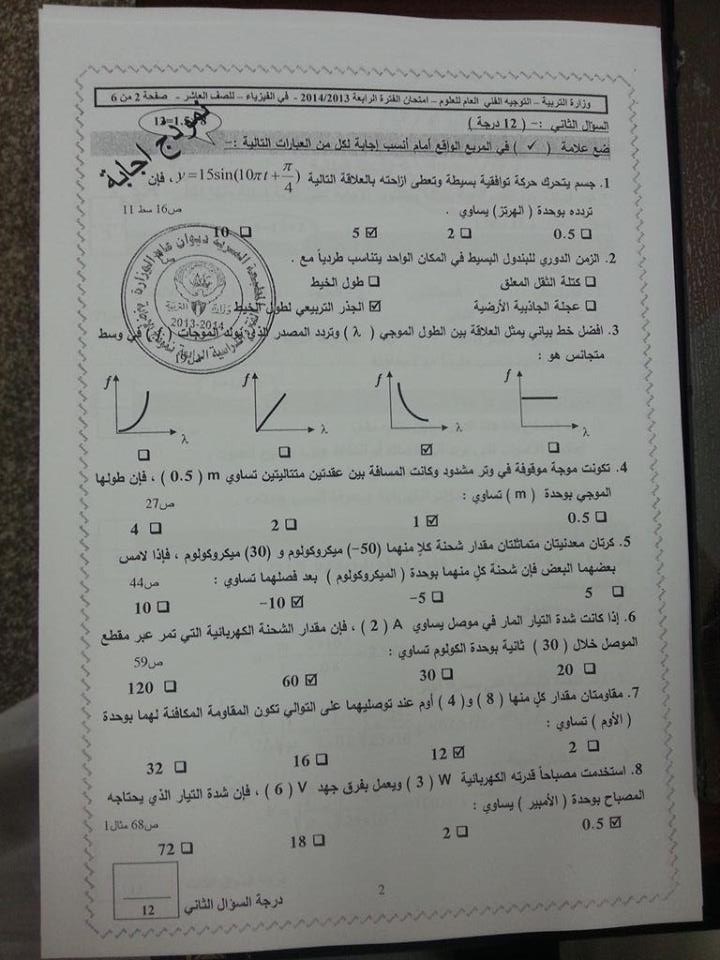 وزارة التربية – التوجيه الفني العام للعلوم – امتحان الفترة الرابعة 2014/2013 - في الفيزياء – للصف العاشر – صفحة 2 من 6
نموذج اجابة
السؤال الثاني :- ( 12 درجة )
ضع علامة ( ✓ ) في المربع الواقع أمام أنسب إجابة لكل من العبارات التالية :-
1. جسم يتحرك حركة توافقية بسيطة وتعطى ازاحته بالعلاقة التالية y = 15sin(10πt + π/4) ، فإن
تردده بوحدة ( الهرتز) يساوي . ص16 سط 11
☐ 0.5 ☐ 2 ☑ 5 ☐ 10
2. الزمن الدوري للبندول البسيط في المكان الواحد يتناسب طردياً مع .
☐ كتلة الثقل المعلق ☐ طول الخيط
☐ عجلة الجاذبية الأرضية ☑ الجذر التربيعي لطول الخيط
2013-2014
3. افضل خط بياني يمثل العلاقة بين الطول الموجي ( λ ) وتردد المصدر الذي يولد الموجات ( f ) في وسط
متجانس هو : ص19
f f f f
λ λ λ λ
☐ ☑ ☐ ☐
4. تكونت موجة موقوفة في وتر مشدود وكانت المسافة بين عقدتين متتاليتين تساوي m ( 0.5 ) ، فإن طولها
الموجي بوحدة ( m ) تساوي : ص27
☐ 0.5 ☑ 1 ☐ 2 ☐ 4
5. كرتان معدنيتان متماثلتان مقدار شحنة كلا منهما (50−) ميكروكولوم و (30) ميكروكولوم ، فإذا لامس
بعضهما البعض فإن شحنة كل منهما بوحدة ( الميكروكولوم ) بعد فصلهما تساوي : ص44
☐ 5 ☐ −5 ☑ −10 ☐ 10
6. إذا كانت شدة التيار المار في موصل يساوي A ( 2 ) ، فإن مقدار الشحنة الكهربائية التي تمر عبر مقطع
الموصل خلال ( 30 ) ثانية بوحدة الكولوم تساوي : ص59
☐ 20 ☐ 30 ☑ 60 ☐ 120
7. مقاومتان مقدار كل منها ( 8 ) و( 4 ) أوم عند توصليهما على التوالي تكون المقاومة المكافئة لهما بوحدة
( الأوم ) تساوي :
☐ 2 ☑ 12 ☐ 16 ☐ 32
8. استخدمت مصباحاً قدرته الكهربائية W ( 3 ) ويعمل بفرق جهد V ( 6 ) ، فإن شدة التيار الذي يحتاجه
المصباح بوحدة ( الأمبير ) يساوي : ص68 مثال1
☑ 0.5 ☐ 2 ☐ 18 ☐ 72
درجة السؤال الثاني 12
2